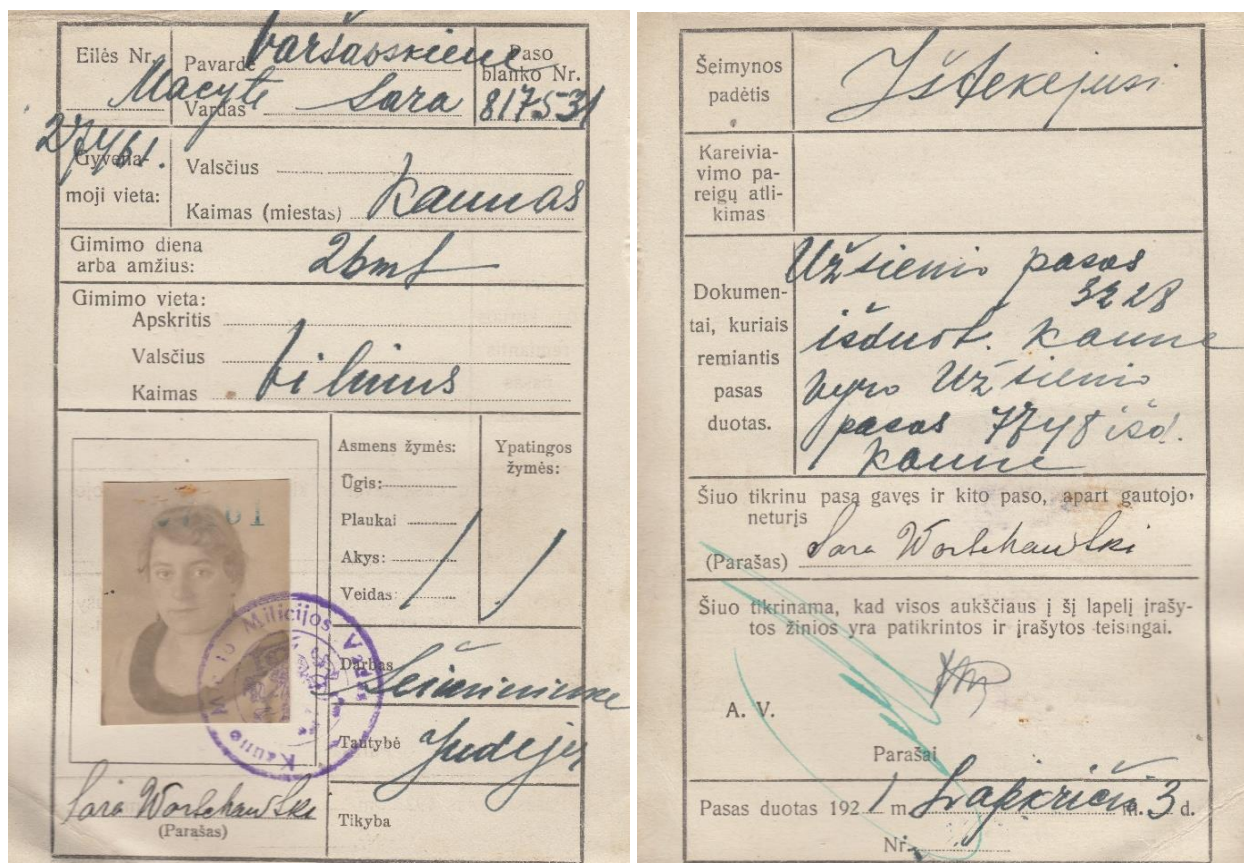 Eilės Nr.
Pavardė Varšavskienė
Paso
blanko Nr.
Macytė Sara
Vardas
817531
Gyvena-
moji vieta:
Valsčius
Kaimas (miestas) Kaunas
Gimimo diena
arba amžius:
26 mt
Gimimo vieta:
Apskritis
Valsčius
Kaimas Vilnius
Asmens žymės:
Ūgis:
Plaukai
Akys:
Veidas:
Ypatingos
žymės:
Kauno Milicijos Vadas
Darbas Šeimininkė
Tautybė Judėjų
Tikyba
Sara Worschawski
(Parašas)
Šeimynos
padėtis
Ištekėjusi
Kareivia-
vimo pa-
reigų atli-
kimas
Dokumen-
tai, kuriais
remiantis
pasas
duotas.
Užsienio pasas
3228
išduot. Kaune
vyro Užsienio
pasas išd.
Kaune
Šiuo tikrinu pasą gavęs ir kito paso, apart gautojo,
neturįs
(Parašas) Sara Worschawski
Šiuo tikrinama, kad visos aukščiaus į šį lapelį įrašy-
tos žinios yra patikrintos ir įrašytos teisingai.
A. V.
Parašai
Pasas duotas 1921 m. Lapkričio m. 3 d.
Nr.